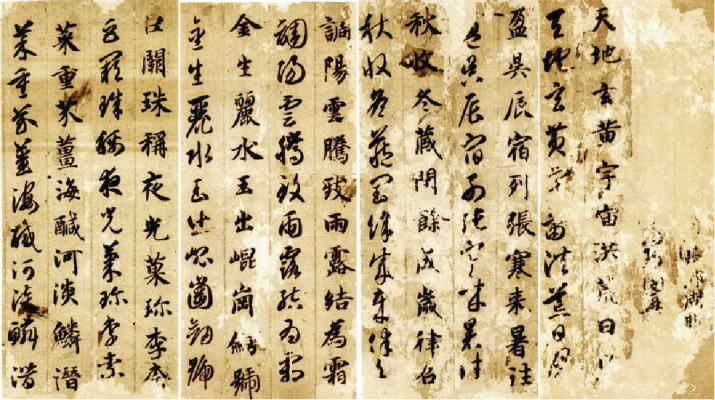 天地玄黃宇宙洪荒日月
天地玄黃宇宙洪荒日月
盈昃辰宿列張寒来暑往
盈昃辰宿列張寒来暑往
秋收冬藏閏餘成歲律呂
秋收冬藏閏餘成歲律呂
調陽雲騰致雨露結為霜
調陽雲騰致雨露結為霜
金生麗水玉出崐崗劒號
金生麗水玉出崐崗劒號
巨闕珠稱夜光菓珍李柰
巨闕珠稱夜光菓珍李柰
菜重芥薑海醎河淡鱗潛
菜重芥薑海醎河淡鱗潛